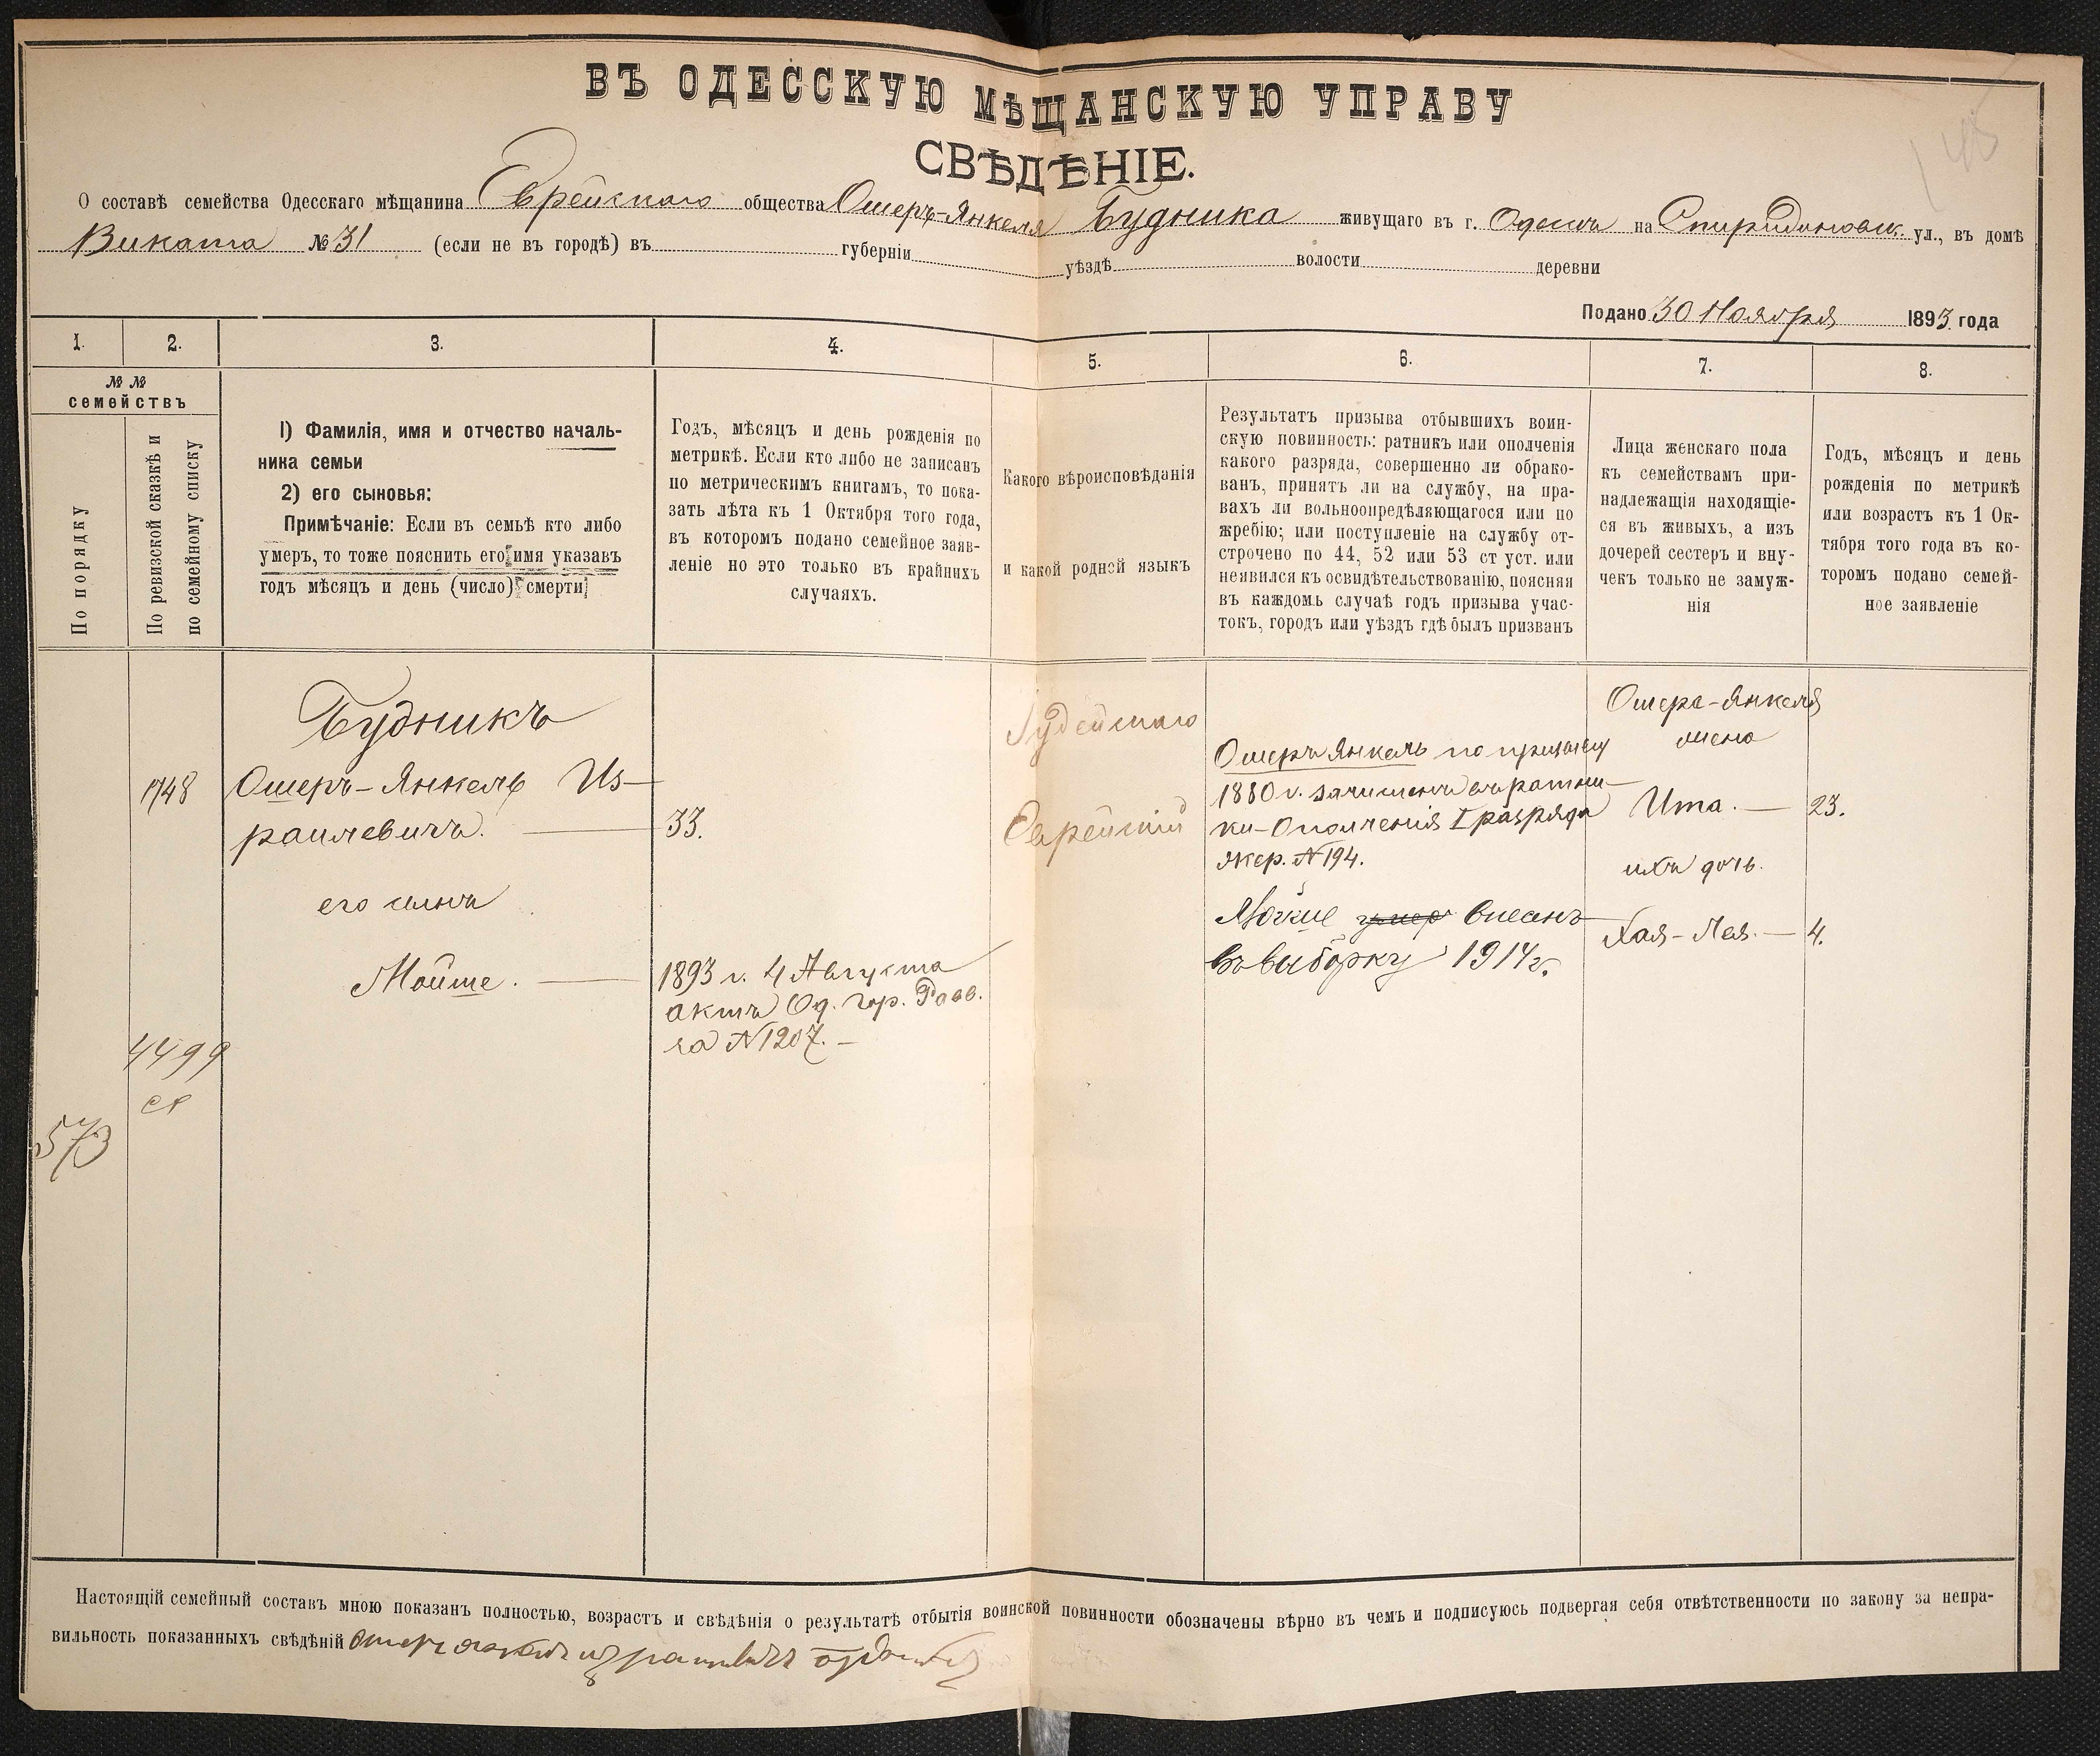 ВЪ ОДЕССКУЮ МѢЩАНСКУЮ УПРАВУ
СВѢДѢНІЕ.
О составѣ семейства Одесскаго мѣщанина Еврейскаго общества Ошеръ-Янкеля Будника живущаго въ г. Одессѣ на Спиридоновск. ул., въ домѣ
Виката № 31 (если не въ городѣ) въ губерніи уѣздѣ волости деревни
Подано 30 Ноября 1893 года
1. 2. 3. 4. 5. 6. 7. 8.
№ №
семействъ
По порядку
По ревизской сказкѣ и
по семейному списку
1) Фамилія, имя и отчество началь-
ника семьи
2) его сыновья:
Примѣчаніе: Если въ семьѣ кто либо
умеръ, то тоже пояснить его имя указавъ
годъ мѣсяцъ и день (число) смерти
Годъ, мѣсяцъ и день рожденія по
метрикѣ. Если кто либо не записанъ
по метрическимъ книгамъ, то пока-
зать лѣта къ 1 Октября того года,
въ которомъ подано семейное заяв-
леніе но это только въ крайнихъ
случаяхъ.
Какого вѣроисповѣданія
и какой родной языкъ
Результатъ призыва отбывшихъ воин-
скую повинность: ратникъ или ополченія
какого разряда, совершенно ли обрако-
ванъ, принятъ ли на службу, на пра-
вахъ ли вольноопредѣляющагося или по
жребію; или поступленіе на службу от-
строчено по 44, 52 или 53 ст уст. или
неявился къ освидѣтельствованію, поясняя
въ каждомъ случаѣ годъ призыва учас-
токъ, городъ или уѣздъ гдѣ былъ призванъ
Лица женскаго пола
къ семействамъ при-
надлежащія находящіе-
ся въ живыхъ, а изъ
дочерей сестеръ и вну-
чекъ только не замуж-
нія
Годъ, мѣсяцъ и день
рожденія по метрикѣ
или возрастъ къ 1 Ок-
тября того года въ ко-
торомъ подано семей-
ное заявленіе
573
1748
4499
Будникъ
Ошеръ-Янкель Из-
раилевичъ.
его сынъ
Мойше.
33.
1893 г. 4 Августа
актъ Од. гор. Равв.
за № 1207.
Іудейскаго
Еврейскій
Ошеръ Янкель по призыву
1880 г. зачисленъ въ ратни-
ки-Ополченія I разряда
жер. № 194.
Мойше умер Внесенъ
въ выборку 1914 г.
Ошера-Янкеля
жена
Ита.
ихъ дочь.
Хая-Лея.
23.
4.
Настоящій семейный составъ мною показанъ полностью, возрастъ и свѣдѣнія о результатѣ отбытія воинской повинности обозначены вѣрно въ чемъ и подписуюсь подвергая себя отвѣтственности по закону за непра-
вильность показанныхъ свѣдѣній